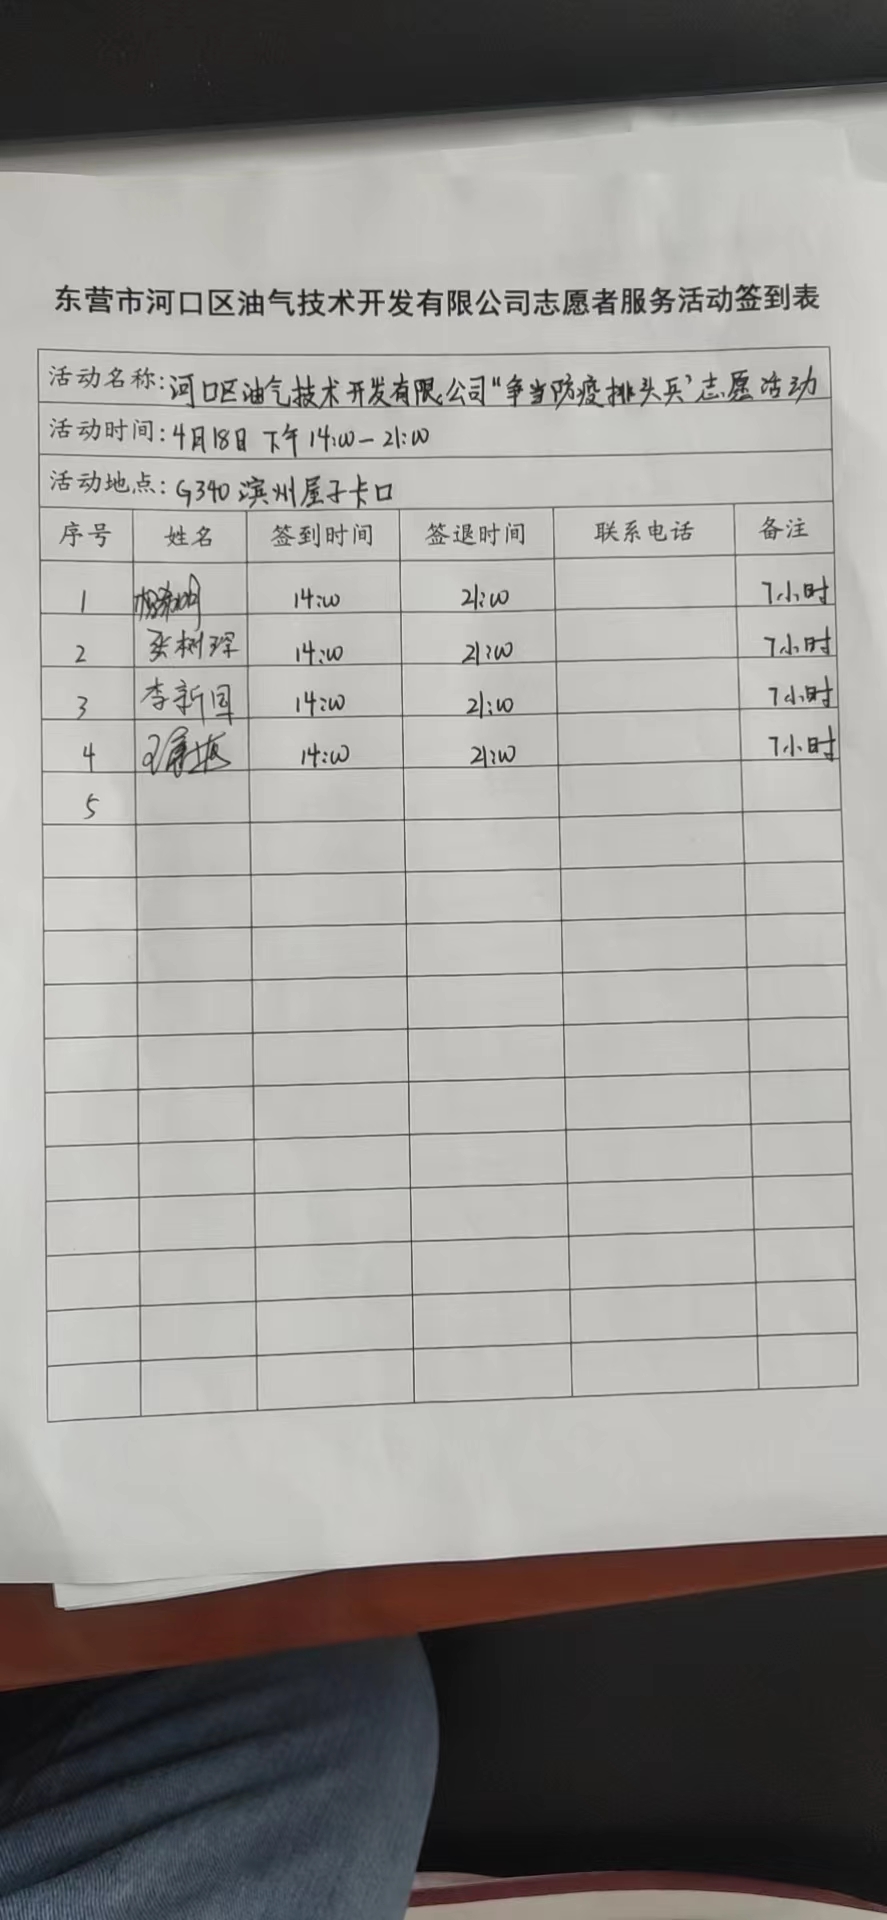 东营市河口区油气技术开发有限公司志愿者服务活动签到表
活动名称:河口区油气技术开发有限公司“争当防疫排头兵”志愿活动
活动时间:4月18日 下午 14:00-21:00
活动地点:G340 滨州屋子卡口
序号 姓名 签到时间 签退时间 联系电话 备注
1 14:00 21:00 7小时
2 张树琛 14:00 21:00 7小时
3 李新国 14:00 21:00 7小时
4 14:00 21:00 7小时
5